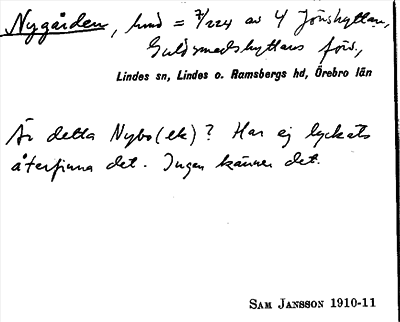 Nygården, hmd = 7/224 av 4 Jönshyttan,
Guldsmedshyttans förs.,
Lindes sn, Lindes o. Ramsbergs hd, Örebro län
Är detta Nybo(ek)? Har ej lyckats
återfinna det. Ingen känner det.
SAM JANSSON 1910-11